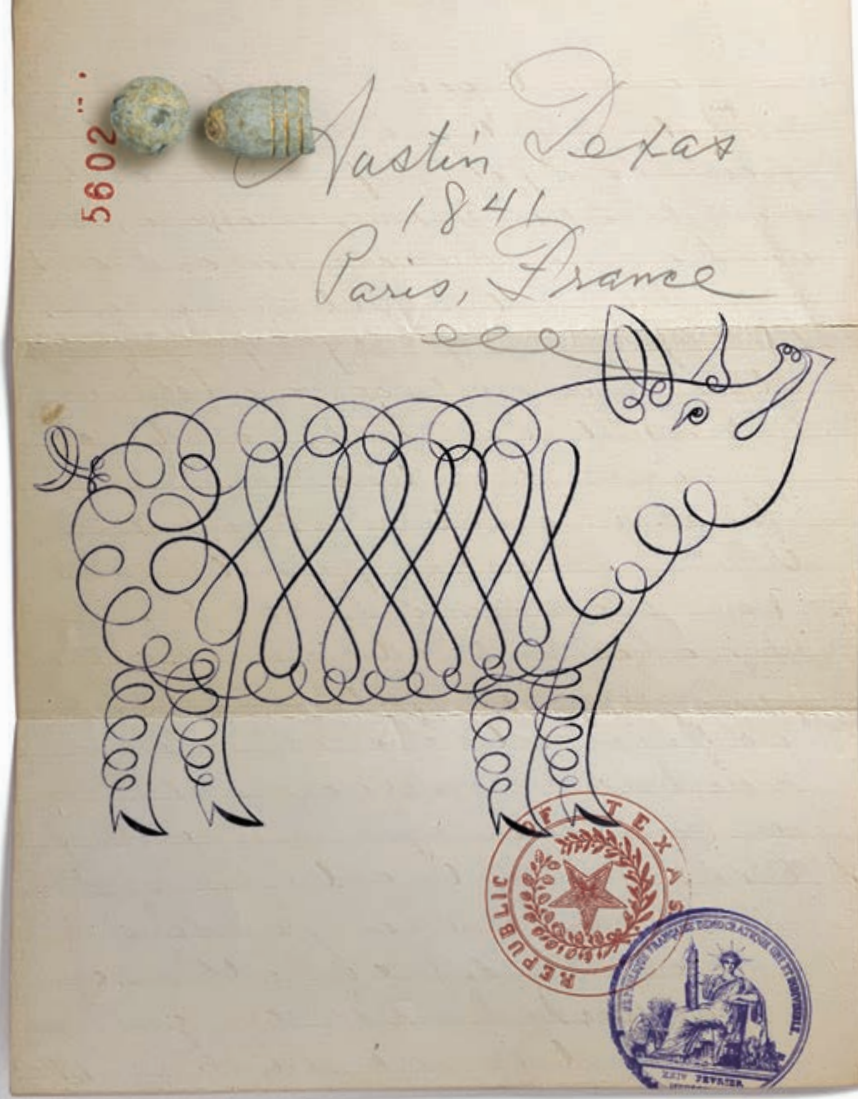 5602
Austin Texas
1841
Paris, France
REPUBLIC OF TEXAS
REPUBLIQUE FRANÇAISE DEMOCRATIQUE UNE ET INDIVISIBLE
XXIV FEVRIER